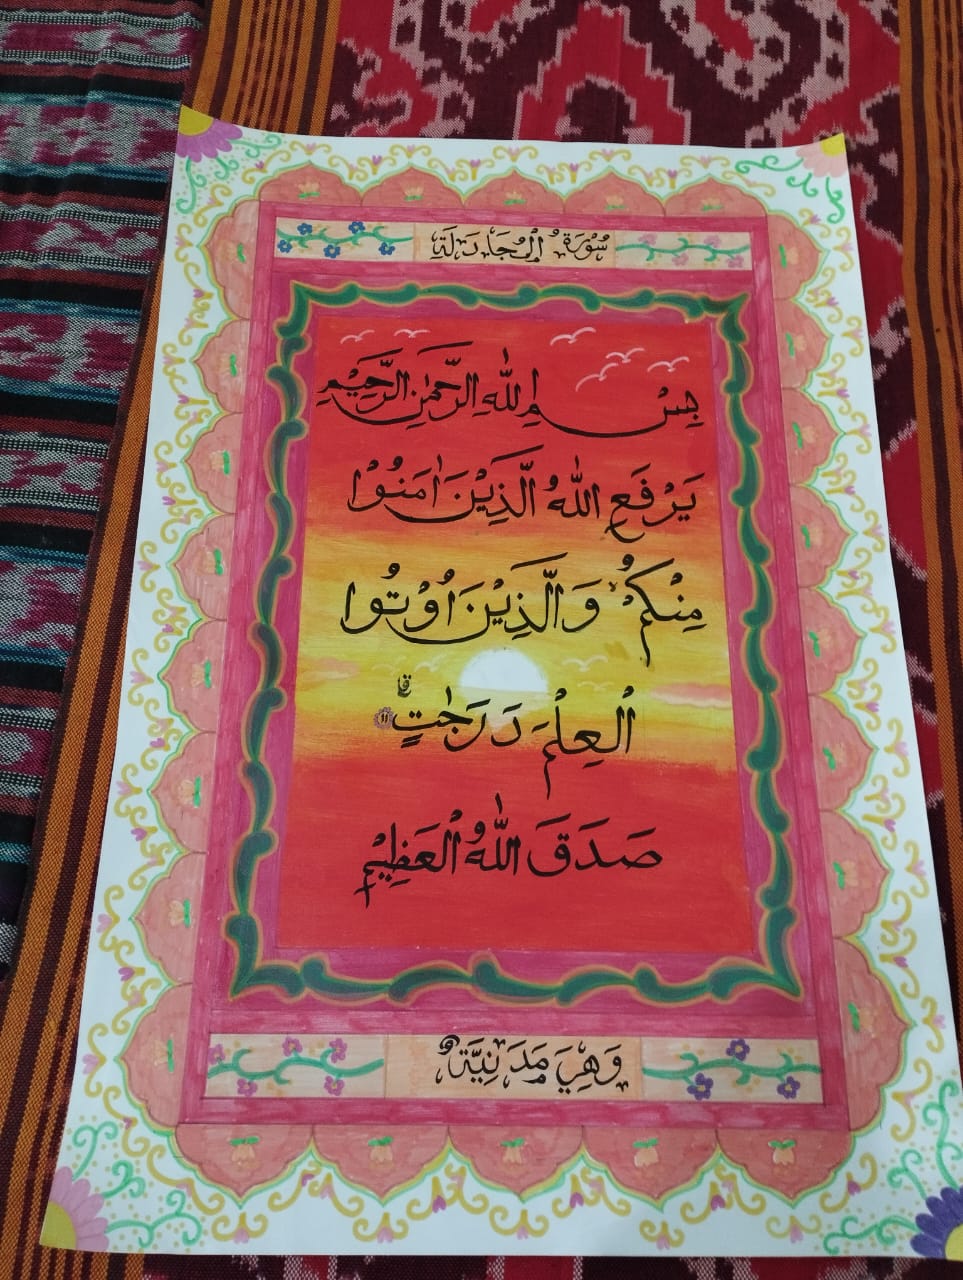 سُوْرَةُ الْمُجَادَلَةِ
بِسْمِ اللّٰهِ الرَّحْمٰنِ الرَّحِيْمِ
يَرْفَعِ اللّٰهُ الَّذِيْنَ اٰمَنُوْا
مِنْكُمْۙ وَالَّذِيْنَ اُوْتُوا
الْعِلْمَ دَرَجٰتٍۗ ١١
صَدَقَ اللّٰهُ الْعَظِيْمِ
وَهِيَ مَدَنِيَّةٌ